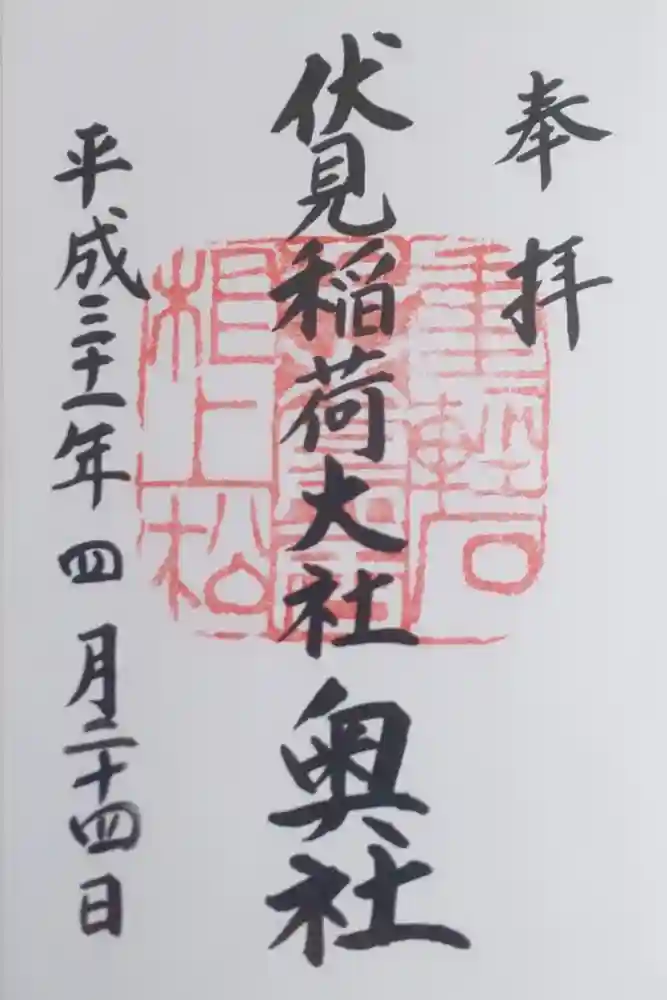 奉拝
伏見稲荷大社奥社
平成三十一年四月二十四日
重軽石
根上松